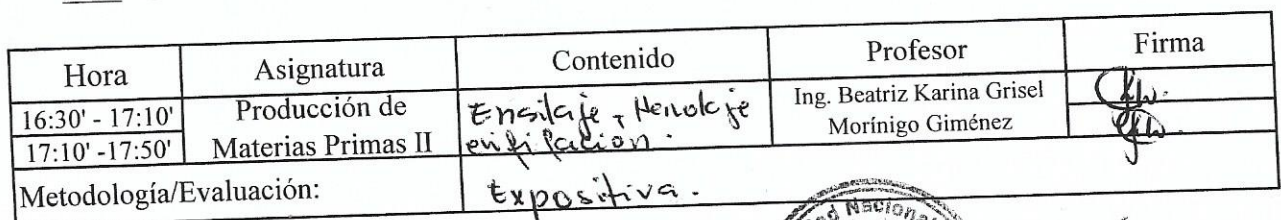 Hora Asignatura Contenido Profesor Firma
16:30' - 17:10' Producción de Ensilaje, Henolaje Ing. Beatriz Karina Grisel
17:10' -17:50' Materias Primas II Morínigo Giménez
Metodología/Evaluación: Expositiva.
Nacional